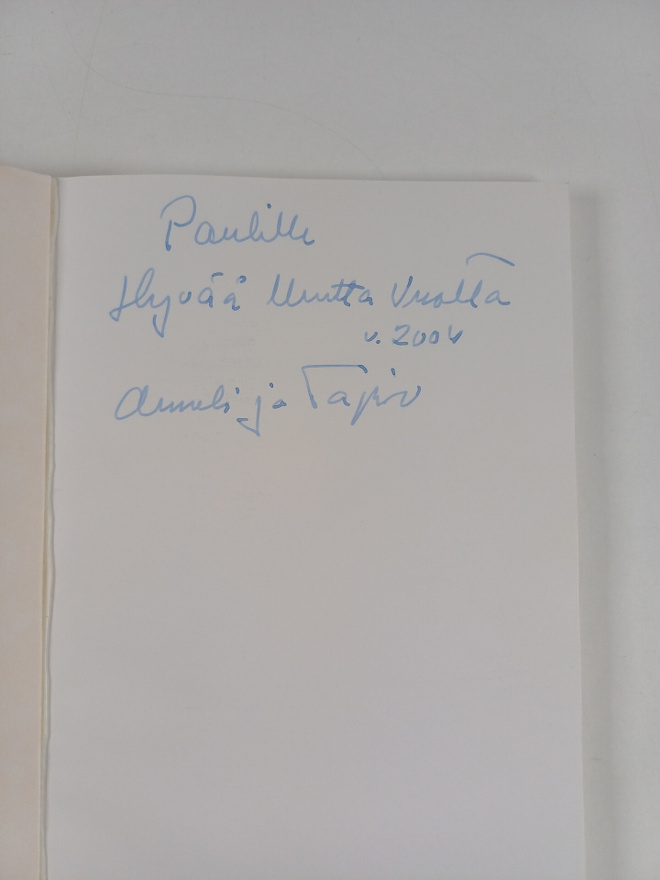 Paulille
Hyvää Uutta Vuotta
v. 2004
Anneli ja Tapio